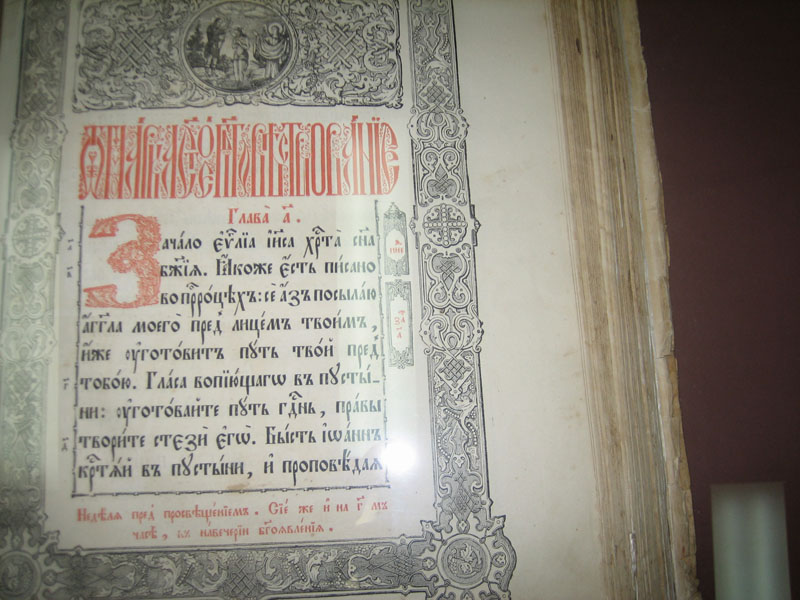 Ѿ марка ст҃ое благовѣствованїе
Глава̀ а҃.
Зача́ло є҆ѵⷢ҇лїа і҆и҃са хрⷭ҇та̀ сн҃а
бж҃їѧ. Ꙗ҆́коже є҆́сть пи́сано
во прⷪ҇ро́цѣхъ: сѐ а҆́зъ посыла́ю
а҆́гг҃ла моего̀ пред̾ лице́мъ твои́мъ,
и҆́же ᲂу҆гото́витъ пꙋ́ть тво́й пред̾
тобо́ю. Гла́са вопїю́щагѡ въ пꙋсты́-
ни: ᲂу҆гото́вайте пꙋ́ть гдⷭ҇нь, пра́вы
твори́те стєзѝ є҆гѡ̀. Бы́сть і҆ѡа́ннъ
крⷭ҇тѧ́й въ пꙋсты́ни, и҆ проповѣ́даѧ
Недѣ́лѧ пред̾ просвѣще́нїемъ. Сїе́ же и҆ на г҃ мъ
часѣ̀, въ наве́черїи бг҃оѧвле́нїѧ.